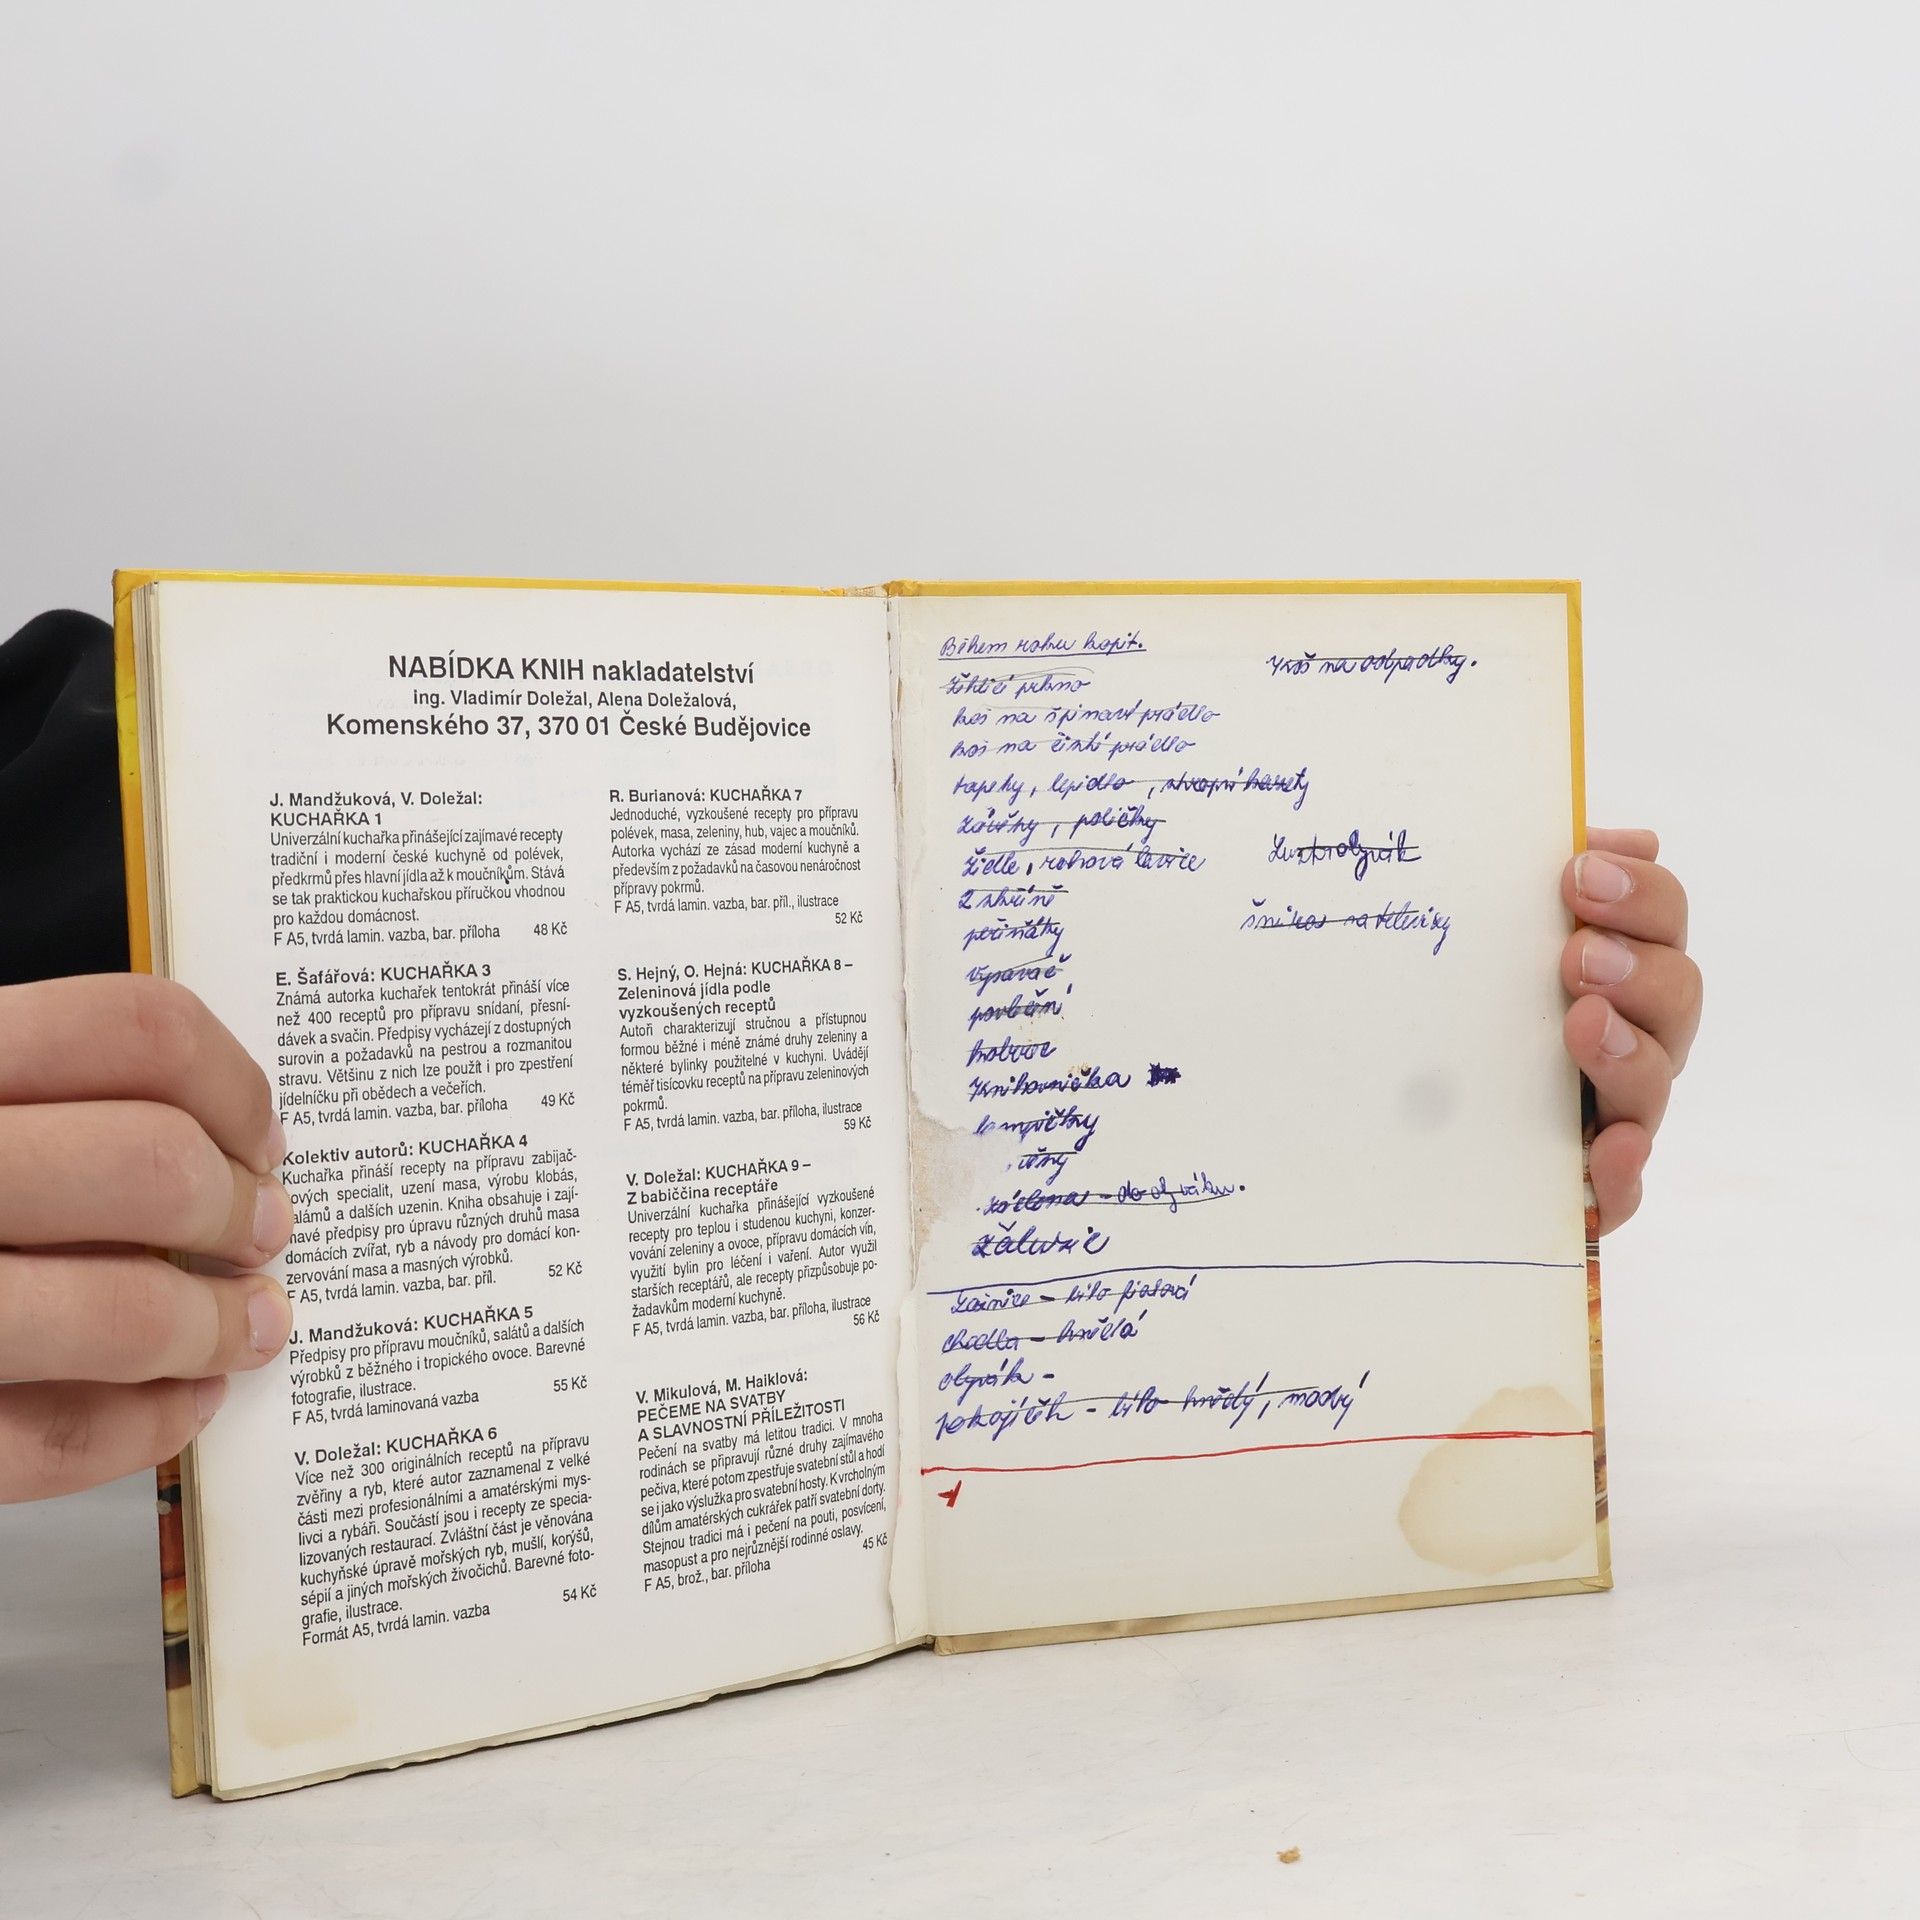 NABÍDKA KNIH nakladatelství
ing. Vladimír Doležal, Alena Doležalová,
Komenského 37, 370 01 České Budějovice
J. Mandžuková, V. Doležal:
KUCHAŘKA 1
Univerzální kuchařka přinášející zajímavé recepty
tradiční i moderní české kuchyně od polévek,
předkrmů přes hlavní jídla až k moučníkům. Stává
se tak praktickou kuchařskou příručkou vhodnou
pro každou domácnost.
F A5, tvrdá lamin. vazba, bar. příloha 48 Kč
E. Šafářová: KUCHAŘKA 3
Známá autorka kuchařek tentokrát přináší více
než 400 receptů pro přípravu snídaní, přesní-
dávek a svačin. Předpisy vycházejí z dostupných
surovin a požadavků na pestrou a rozmanitou
stravu. Většinu z nich lze použít i pro zpestření
jídelníčku při obědech a večeřích.
F A5, tvrdá lamin. vazba, bar. příloha 49 Kč
Kolektiv autorů: KUCHAŘKA 4
Kuchařka přináší recepty na přípravu zabijač-
ových specialit, uzení masa, výrobu klobás,
alámů a dalších uzenin. Kniha obsahuje i zají-
mavé předpisy pro úpravu různých druhů masa
domácích zvířat, ryb a návody pro domácí kon-
zervování masa a masných výrobků.
F A5, tvrdá lamin. vazba, bar. příl. 52 Kč
J. Mandžuková: KUCHAŘKA 5
Předpisy pro přípravu moučníků, salátů a dalších
výrobků z běžného i tropického ovoce. Barevné
fotografie, ilustrace.
F A5, tvrdá laminovaná vazba 55 Kč
V. Doležal: KUCHAŘKA 6
Více než 300 originálních receptů na přípravu
zvěřiny a ryb, které autor zaznamenal z velké
části mezi profesionálními a amatérskými mys-
livci a rybáři. Součástí jsou i recepty ze specia-
lizovaných restaurací. Zvláštní část je věnována
kuchyňské úpravě mořských ryb, mušlí, korýšů,
sépií a jiných mořských živočichů. Barevné foto-
grafie, ilustrace.
Formát A5, tvrdá lamin. vazba 54 Kč
R. Burianová: KUCHAŘKA 7
Jednoduché, vyzkoušené recepty pro přípravu
polévek, masa, zeleniny, hub, vajec a moučníků.
Autorka vychází ze zásad moderní kuchyně a
především z požadavků na časovou nenáročnost
přípravy pokrmů.
F A5, tvrdá lamin. vazba, bar. příl., ilustrace
52 Kč
S. Hejný, O. Hejná: KUCHAŘKA 8 –
Zeleninová jídla podle
vyzkoušených receptů
Autoři charakterizují stručnou a přístupnou
formou běžné i méně známé druhy zeleniny a
některé bylinky použitelné v kuchyni. Uvádějí
téměř tisícovku receptů na přípravu zeleninových
pokrmů.
F A5, tvrdá lamin. vazba, bar. příloha, ilustrace
59 Kč
V. Doležal: KUCHAŘKA 9 –
Z babiččina receptáře
Univerzální kuchařka přinášející vyzkoušené
recepty pro teplou i studenou kuchyni, konzer-
vování zeleniny a ovoce, přípravu domácích vín,
využití bylin pro léčení i vaření. Autor využil
starších receptářů, ale recepty přizpůsobuje po-
žadavkům moderní kuchyně.
F A5, tvrdá lamin. vazba, bar. příloha, ilustrace
56 Kč
V. Mikulová, M. Haiklová:
PEČEME NA SVATBY
A SLAVNOSTNÍ PŘÍLEŽITOSTI
Pečení na svatby má letitou tradici. V mnoha
rodinách se připravují různé druhy zajímavého
pečiva, které potom zpestřuje svatební stůl a hodí
se i jako výslužka pro svatební hosty. K vrcholným
dílům amatérských cukrářek patří svatební dorty.
Stejnou tradici má i pečení na pouti, posvícení,
masopust a pro nejrůznější rodinné oslavy.
45 Kč
F A5, brož., bar. příloha
Během roku kopit.
Koš na odpadky.
Žehlící prkno
koš na špinavé prádlo
koš na čisté prádlo
tapety, lepidlo, stropní kazety
závěsy, poličky
židle, rohová lavice
2 skříně
peřiňáky
Vysavač
povlečení
koberec
Knihovnička
lampičky
záclona - do obýváku.
Žaluzie
Lustr obývák
šňůra na televizy
ložnice - bílo fialová
chodba - hnědá
obývák -
pokojíček - bílo hnědý, modrý